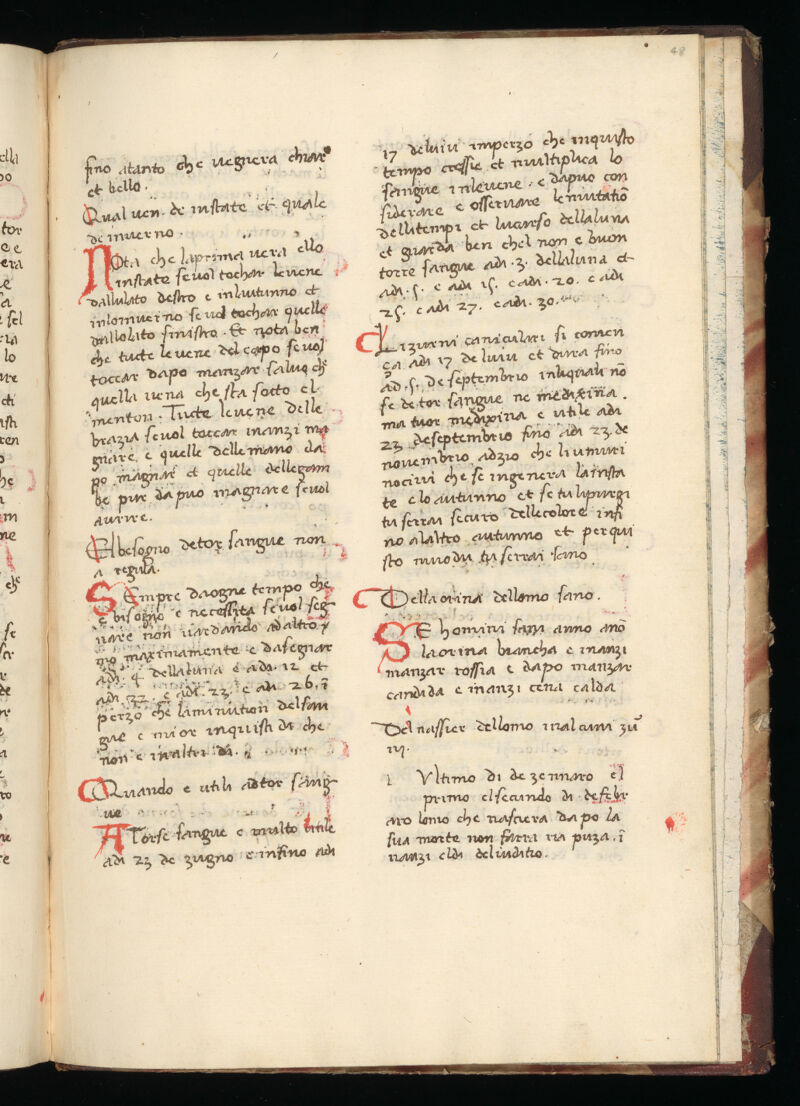 48
fino atanto che uegnera chiar
et bello.
Qual uen. de instate et quale
de inuerno.
Nota che la prima uera ello
instate se uol tochar le uene
dallulato destro e inlautunno et
inlo inuerno se uol tochar quelle
dallolato sinistro. Et nota ben
che tucte le uene del capo se uol
toccar dapo manzar saluo ch̄
quella uena che sta socto el
menton. Tucte le uene delle
brazia se uol toccar inanzi ma
gnare. e quelle delle mano da
po magnar et quelle delle gam
be pur dapuo magnare se uol
aurire.
El besogno de tor sangue non
a regula.
Sempre da ogne tempo che
e bisogno e necessita se uol seg
nare non uardando ad altro
mo maximamente e da segnar
adi. 4 della luna e adi. 12 et
adi. 22. e adi. 23. e adi 26. ī
perzo che la minution del san
gue e mior inquisti di che
non e in altri di.
Quando e utili ad tor sang
ue
A Torse sangue e multo utile
adi 23 de zugno e infino adi
17 de luiu imperzo che inquisto
tempo cressie et multiplica lo
sangue inleuene. e dapuo con
siderare e osseruare le mutatiō
delli tempi et lucurso della luna
et guarda ben chel non e buon
torre sangue adi. 3. della luna et
adi. 5. e adi 15. e adi. 20. e adi
25. e adi 27. e adi. 30.
Li zurni caniculari si comen
ça adi 17 de luiu et dura fino
ad. 5. de septembrio inliquali nō
se de tor sangue ne medixina.
ma tuor medixina e utile adi
23 de septembrio fino adi 23. de
nouembrio adzio che li umuri
nociui che se ingenera la insta
te e lo autunno et se tu lipurgi
tu serrai securo delle colore infi
no alaltro autunno et per qui
sto muodu tu serrai sano
Della orina dellomo sano.
SE homini sani anno anō
la orina biancha e inanzi
manzar rossia e dapo manzar
candida e inanzi cena calda
Del nassier dellomo inalcuni zū
iij.
1 Vltimo di de zennaro el
primo el secundo di de febr
aro lomo che nascera dapo la
sua morte non farra ria puza. ī
nanzi el di del iuditio.